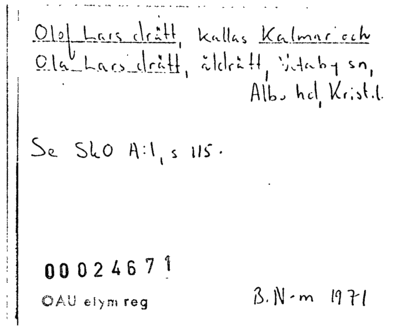 Olof Lars drätt, kallas Kalmar och
Ola Lars drätt, åldrätt, Ittaby sn,
Albo hd, Krist.l.
Se SkO A:1, s 115.
00024671
OAU elymreg
B.N-m 1971